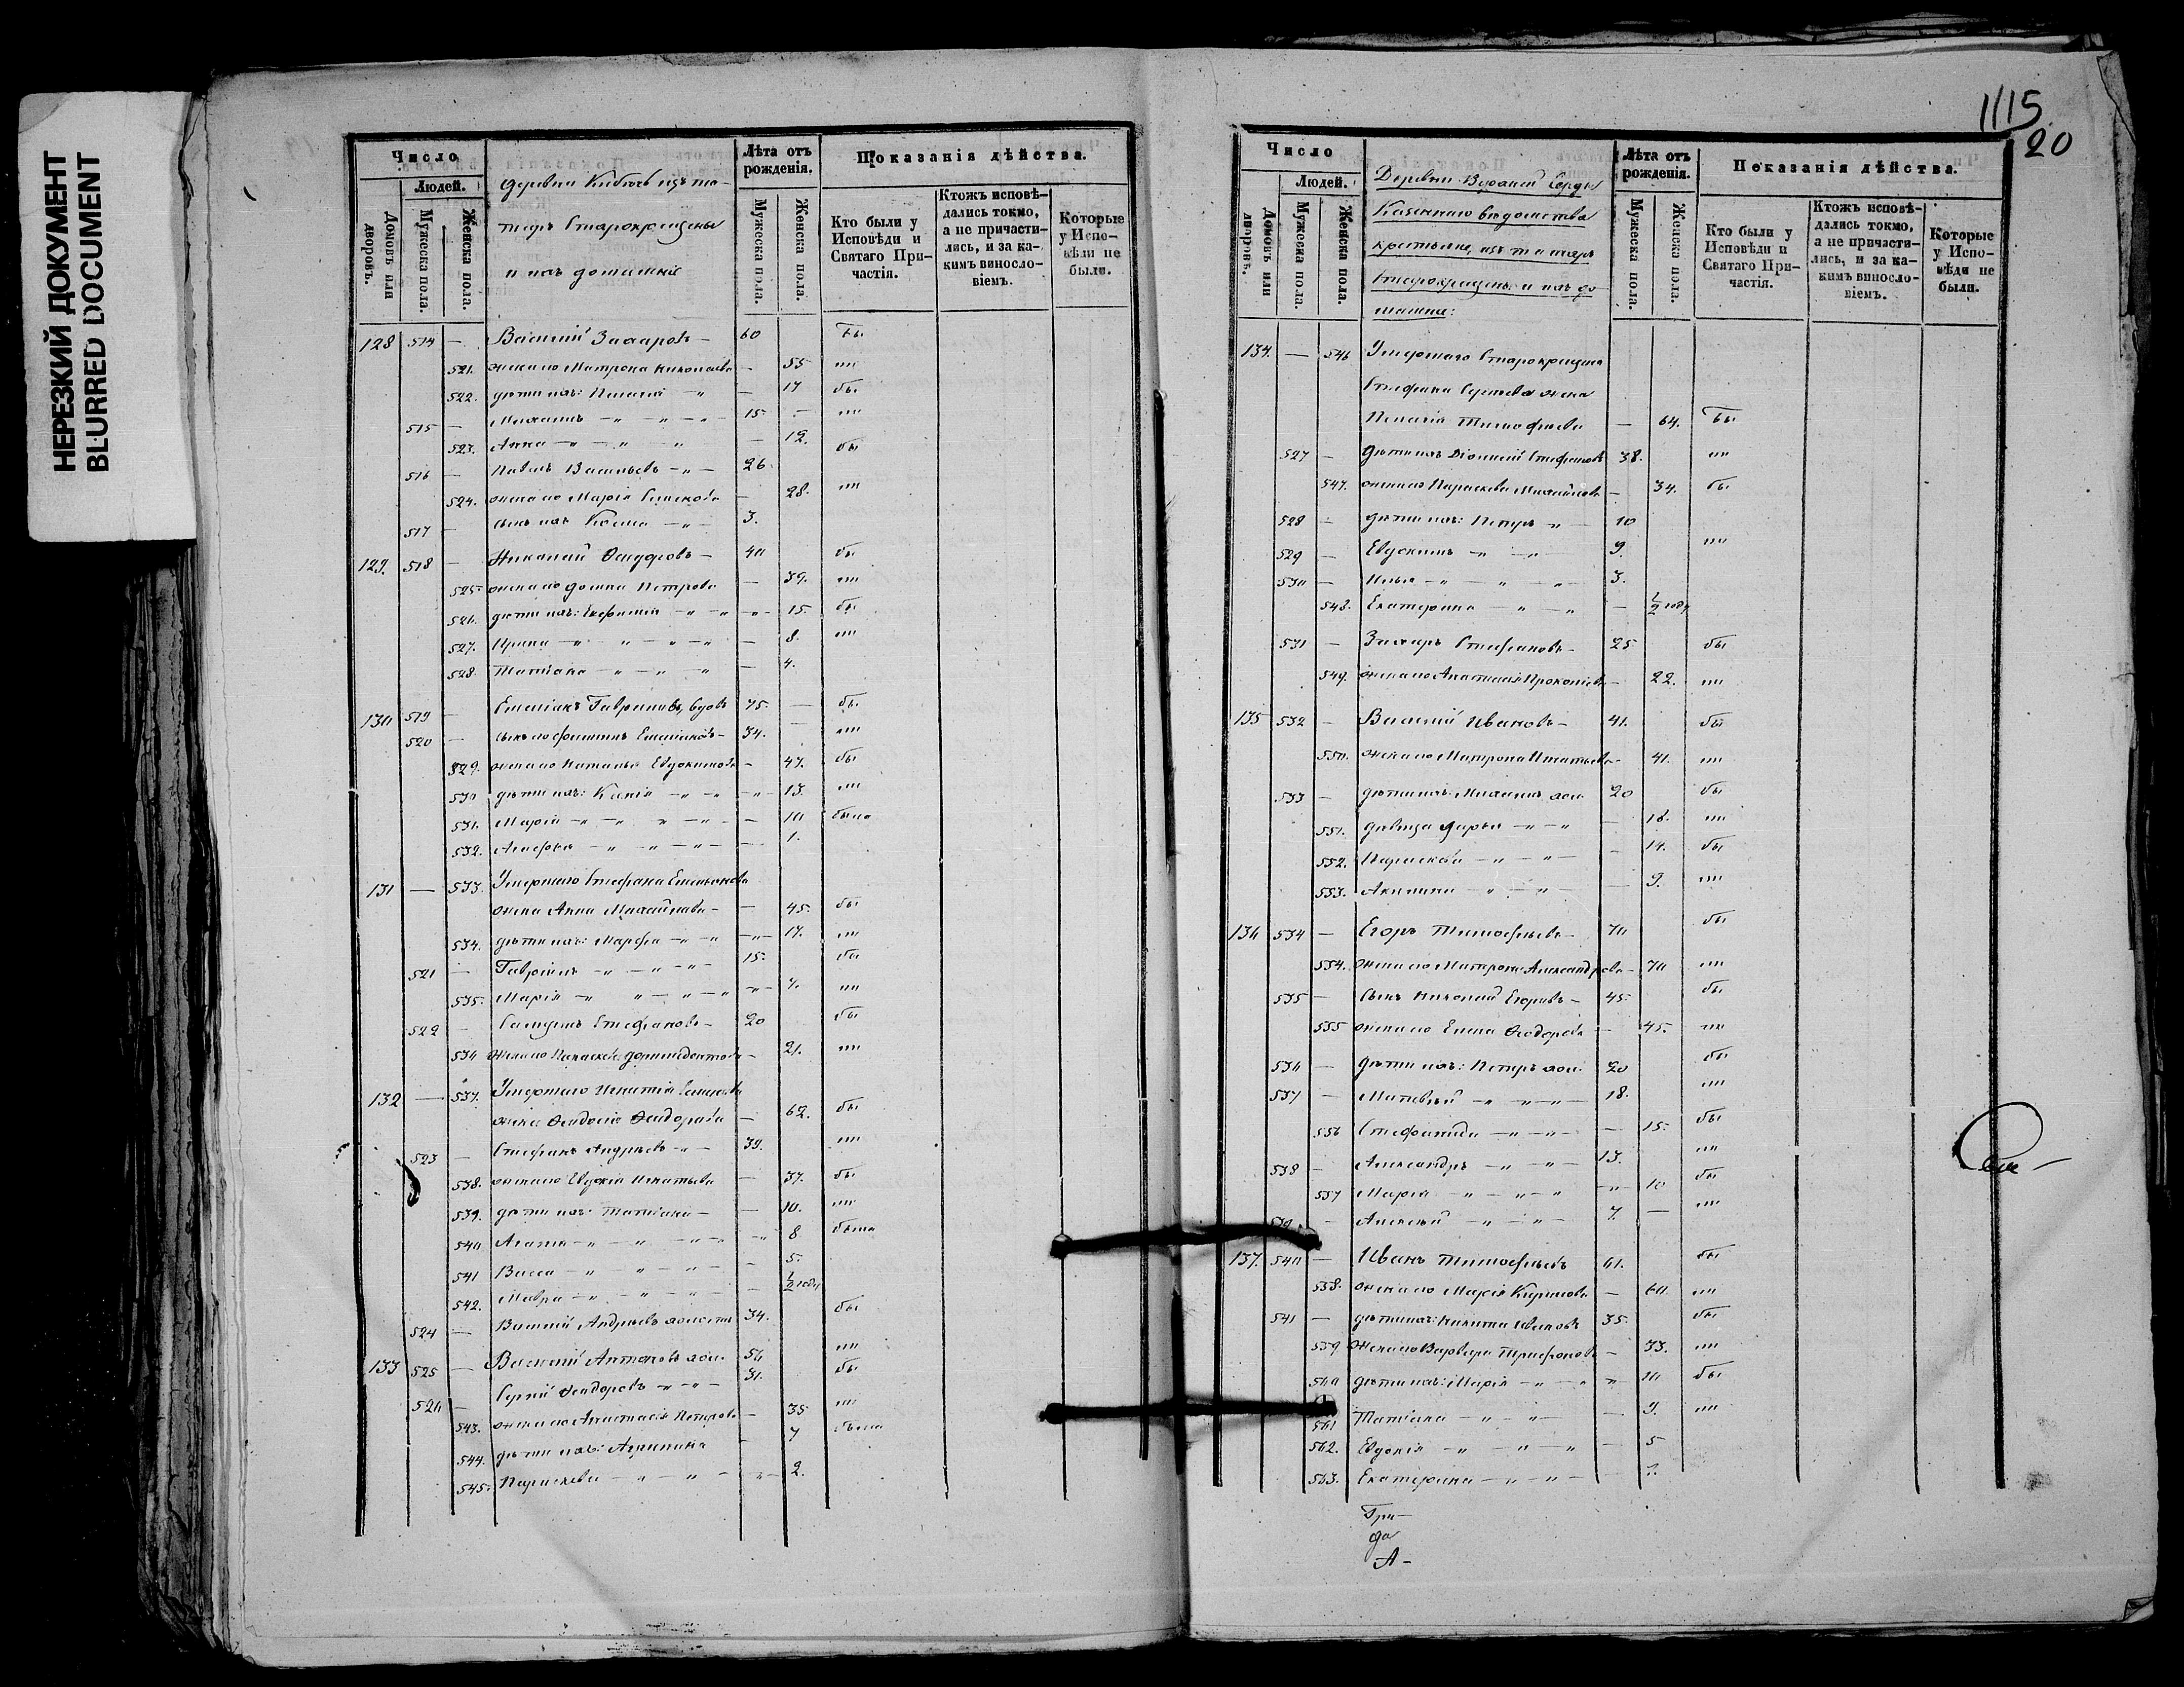 НЕРЕЗКИЙ ДОКУМЕНТ
BLURRED DOCUMENT
Число
Людей.
Домовъ или дворовъ.
Мужеска пола.
Женска пола.
деревни изъ та-
таръ Старокрещены
и ихъ домашніе
Лѣта отъ рожденія.
Мужеска пола.
Женска пола.
Показанія дѣйства.
Кто были у Исповѣди и Святаго При-частія.
Ктожъ исповѣ-дались токмо, а не причасти-лись, и за ка-кимъ винослo-віемъ.
Которые у Испо-вѣди не были.
128 514 — Василій Захаровъ — 60 бы
521. жена его Матрона Николаева — 55 ""
522. дѣти ихъ: — 17 бы
515 — Михаилъ 15. — ""
523. Анна — 12. бы
516 — Павелъ Васильевъ 26.
524. жена его Марія — 28. ""
517 — сынъ ихъ Косма 3.
129. 518 — Николай Ѳедоровъ — 40 бы
525. жена его Домна Петрова — 39. ""
526. дѣти ихъ: 15. бы
527. Ирина — 8. ""
528. Татіана — 4.
130 519 — Емеліанъ Гавриловъ, вдовъ 75. — бы
520 — сынъ его Филиппъ Емеліановъ — 34. ""
529. жена его Наталья Евдокимова — 47. бы
530 дѣти ихъ: 13. ""
531. Марія — 10 была
532. Агафья — 1.
131 — 533. Умершаго Стефана Емельянова
жена Анна Михайлова — 45. бы
534. дѣти ихъ: Марѳа 17. ""
521 — Гавріилъ 15. бы
535. Марія 7. ""
522 — Стефановъ — 20 бы
536 жена его Параскева — 21. ""
132 — 537. Умершаго Игнатія
жена Ѳеодосія Ѳеодорова — 62. бы
523 — Стефанъ Андреевъ 39. ""
538. жена его Евдокія Игнатьева — 37. бы
539. дѣти ихъ: Татіана — 10. ""
540 Агафья 8 была
541 Васса — 5.
542. Мавра — ½ году
524 — Василій Андреевъ холостъ 34. бы
133 525 — Василій Антоновъ хол. 56 ""
526 — Сергій Ѳеодоровъ 31. бы
543. жена его Анастасія Петрова — 35. ""
544. дѣти ихъ: Агрипина — 7 была
545. Параскева 2.
1115
20
Число
Людей.
Домовъ или дворовъ.
Мужеска пола.
Женска пола.
Деревни
Казеннаго вѣдомства
крестьяне, изъ татаръ
Старокрещены и ихъ до
машніе:
Лѣта отъ рожденія.
Мужеска пола.
Женска пола.
Показанія дѣйства.
Кто были у Исповѣди и Святаго При-частія.
Ктожъ исповѣ-дались токмо, а не причасти-лись, и за ка-кимъ винослo-віемъ.
Которые у Испо-вѣди не были.
134. — 546 Умершаго Старокрещена
Стефана Сергѣева жена
Пелагія Тимофѣева — 64. бы
527 — Дѣти ихъ Діонисій Стефановъ 38. ""
547. жена его Параскева Михайлова — 34. бы
528 — дѣти ихъ: Петръ 10
529 — Евдокимъ 9. ""
530 — Илья 3.
548. Екатерина — ½ году
531 — Захаръ Стефановъ — 25 бы
549. жена его Анастасія Прокопіева — 22. ""
135 532 — Василій Ивановъ — 41. бы
550. жена его Матрона Игнатьева — 41. ""
533 — дѣти ихъ: Михаилъ хол. 20 бы
551. дѣвица Дарья — 18. ""
552. Параскева — 14. бы
553. Акилина — 9. ""
136 534 — Егоръ Тимофѣевъ — 70 бы
554. жена его Матрона Александрова — 70 ""
535 — Сынъ Николай Егоровъ — 45. бы
555 жена его Елена Ѳеодорова — 45. ""
536 — дѣти ихъ: Петръ хол. 20 бы
537 — Матвѣй 18. ""
556 Стефанида — 15. бы
538 — Александръ 13. ""
557 Марія 10 бы
539 — Алексѣй 7. — ""
137. 540 — Иванъ Тимофѣевъ 61. бы
558. жена его Марія Кирилова — 60. ""
541 — дѣти ихъ: Никита Ивановъ 35. бы
559 жена его Варвара Трифонова — 33. ""
560 дѣти ихъ: Марія 10 бы
561 Татіана — 9. ""
562. Евдокія — 5
563. Екатерина
Гри—
да
А—